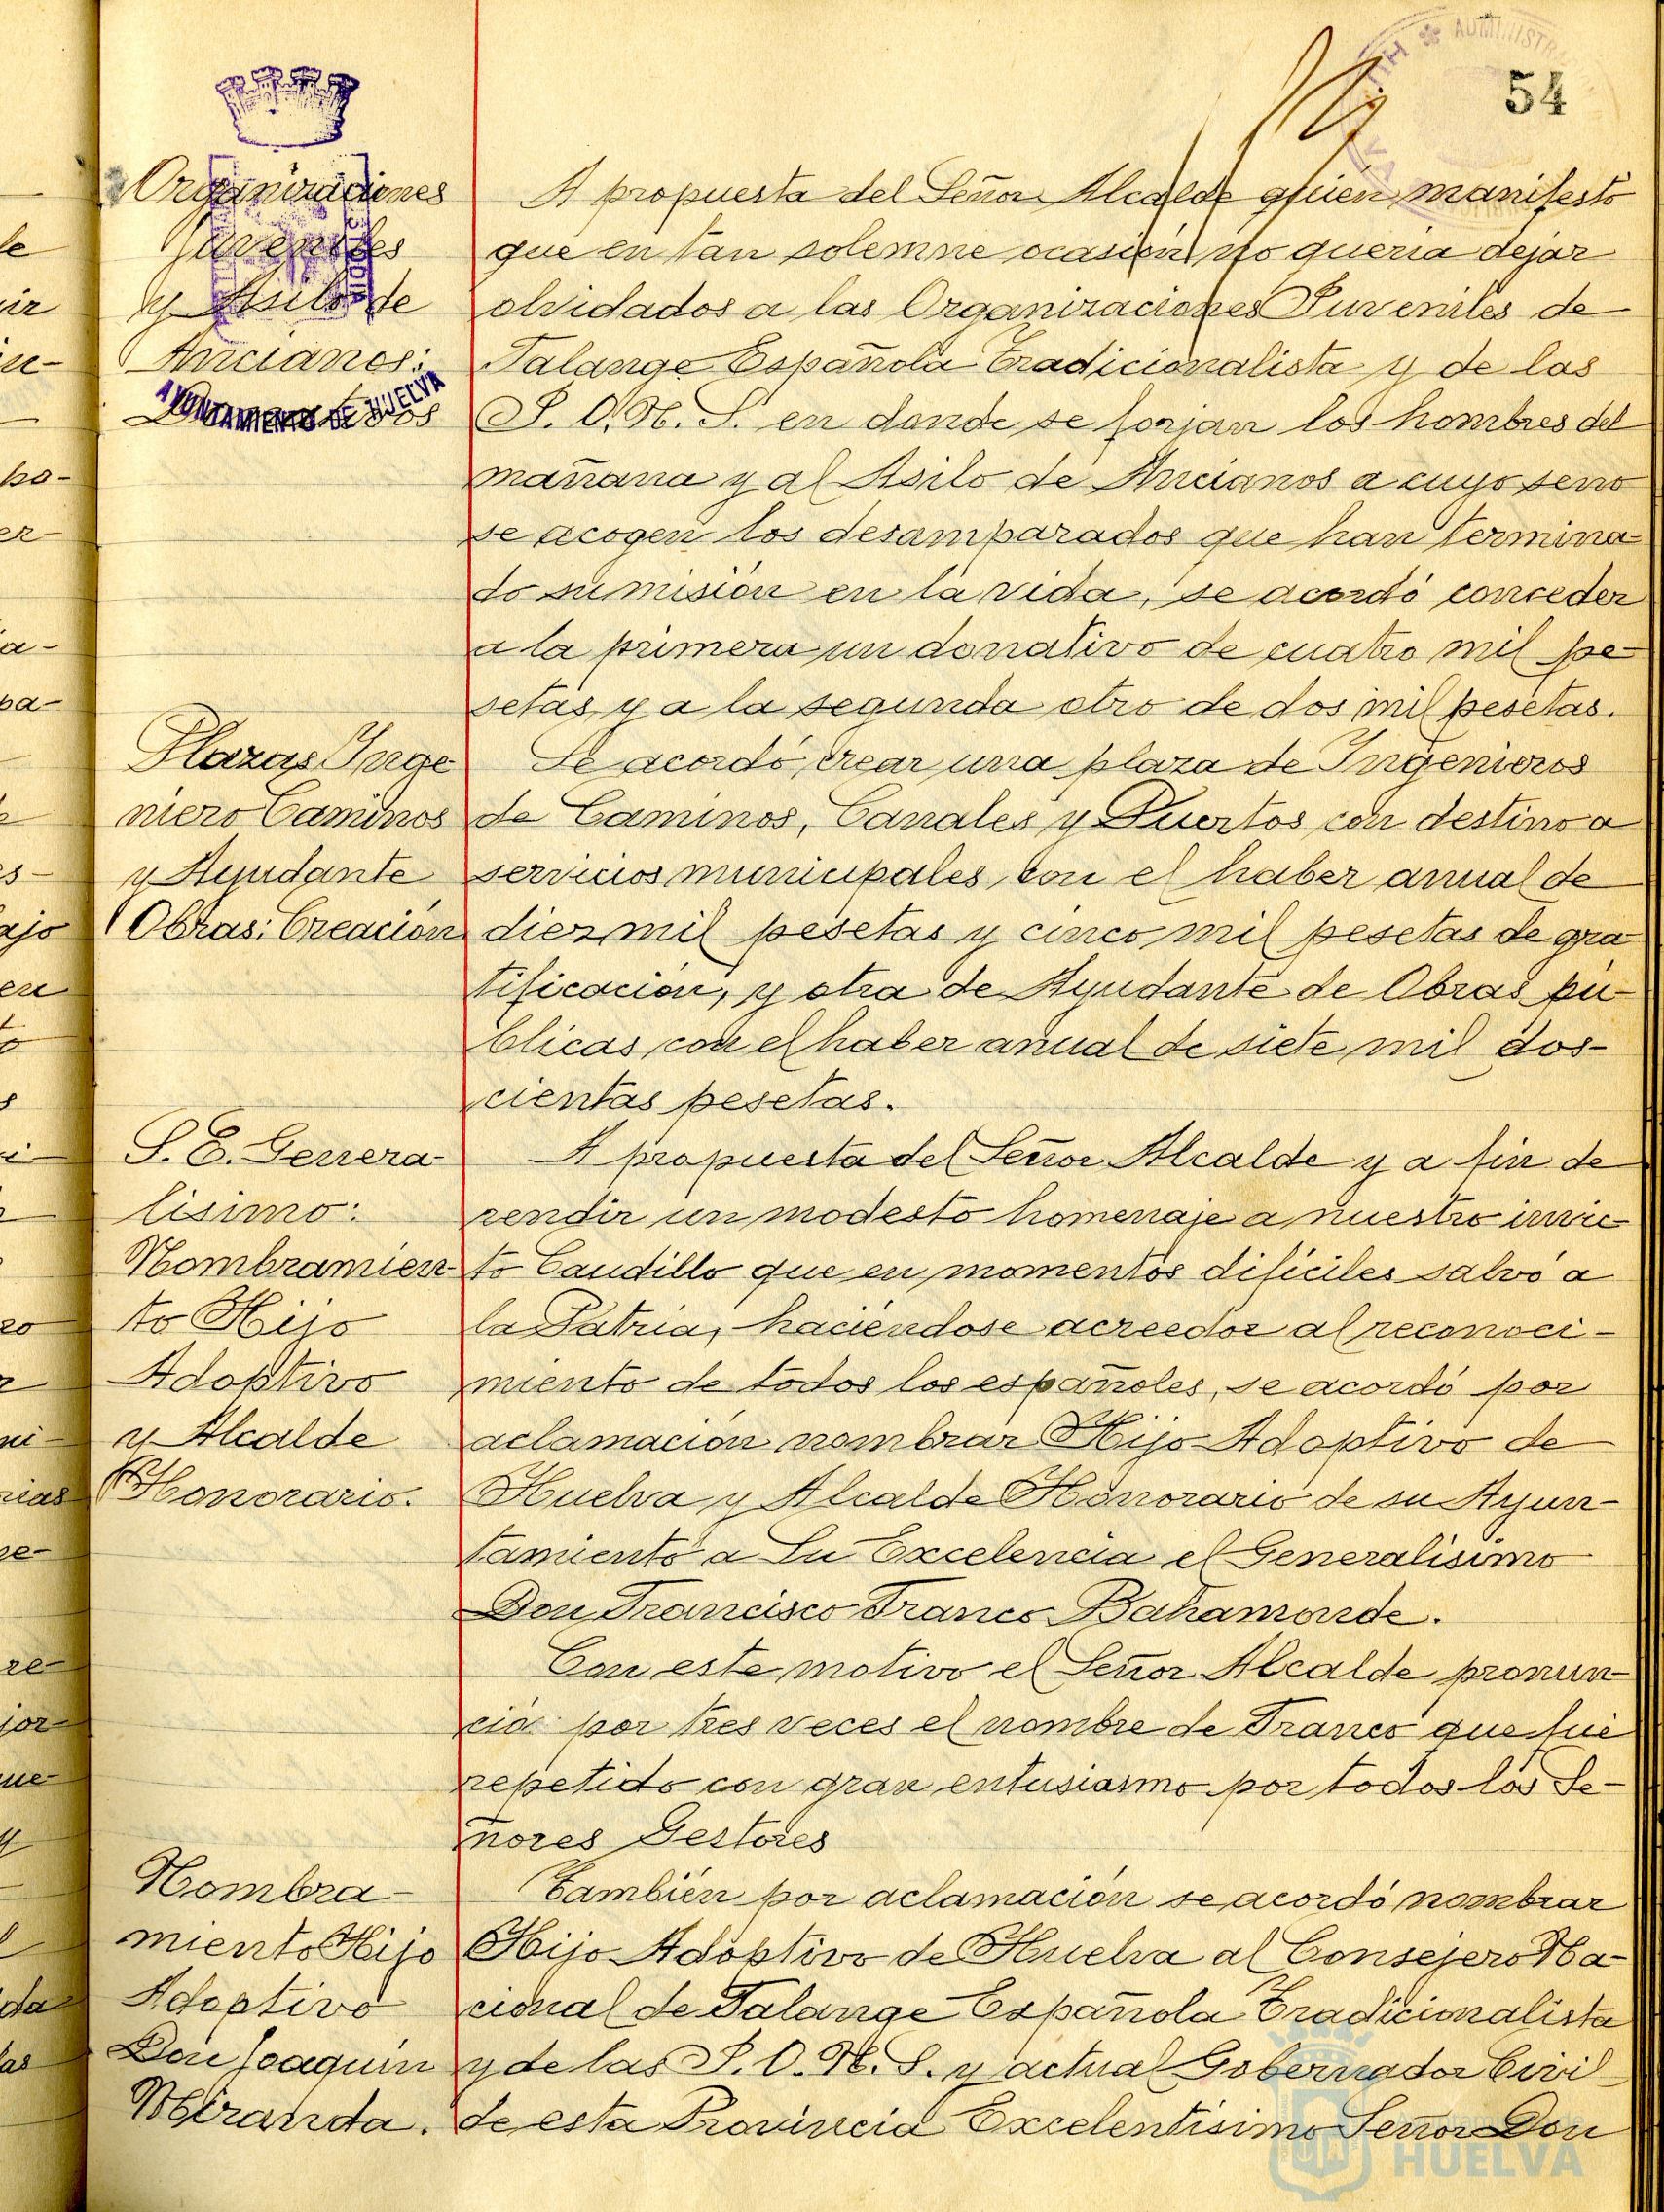 54
Organizaciones
Juveniles
y Asilo de
Ancianos:
Donativos
AYUNTAMIENTO DE HUELVA
A propuesta del Señor Alcalde quien manifestó
que en tan solemne ocasión no queria dejar
olvidados a las Organizaciones Juveniles de
Falange Española Tradicionalista y de las
J. O. N. S. en donde se forjan los hombres del
mañana y al Asilo de Ancianos a cuyo seno
se acogen los desamparados que han termina-
do su misión en la vida, se acordó conceder
a la primera un donativo de cuatro mil pe-
setas y a la segunda otro de dos mil pesetas.
Plazas Inge
niero Caminos
y Ayudante
Obras: Creación
Se acordó crear una plaza de Ingenieros
de Caminos, Canales y Puertos con destino a
servicios municipales con el haber anual de
diez mil pesetas y cinco mil pesetas de gra
tificación, y otra de Ayudante de Obras pú-
blicas con el haber anual de siete mil dos-
cientas pesetas.
S. E. Genera-
lisimo:
Nombramien-
to Hijo
Adoptivo
y Alcalde
Honorario.
A propuesta del Señor Alcalde y a fin de
rendir un modesto homenaje a nuestro invic-
to Caudillo que en momentos dificiles salvó a
la Patria, haciéndose acreedor al reconoci-
miento de todos los españoles, se acordó por
aclamación nombrar Hijo Adoptivo de
Huelva y Alcalde Honorario de su Ayun-
tamiento a Su Excelencia el Generalisimo
Don Francisco Franco Bahamonde.
Con este motivo el Señor Alcalde pronun-
ció por tres veces el nombre de Franco que fué
repetido con gran entusiasmo por todos los Se-
ñores Gestores
Nombra-
miento Hijo
Adoptivo
Don Joaquin
Miranda.
También por aclamación se acordó nombrar
Hijo Adoptivo de Huelva al Consejero Na-
cional de Falange Española Tradicionalista
y de las J. O. N. S. y actual Gobernador Civil
de esta Provincia Excelentísimo Señor Don
HUELVA